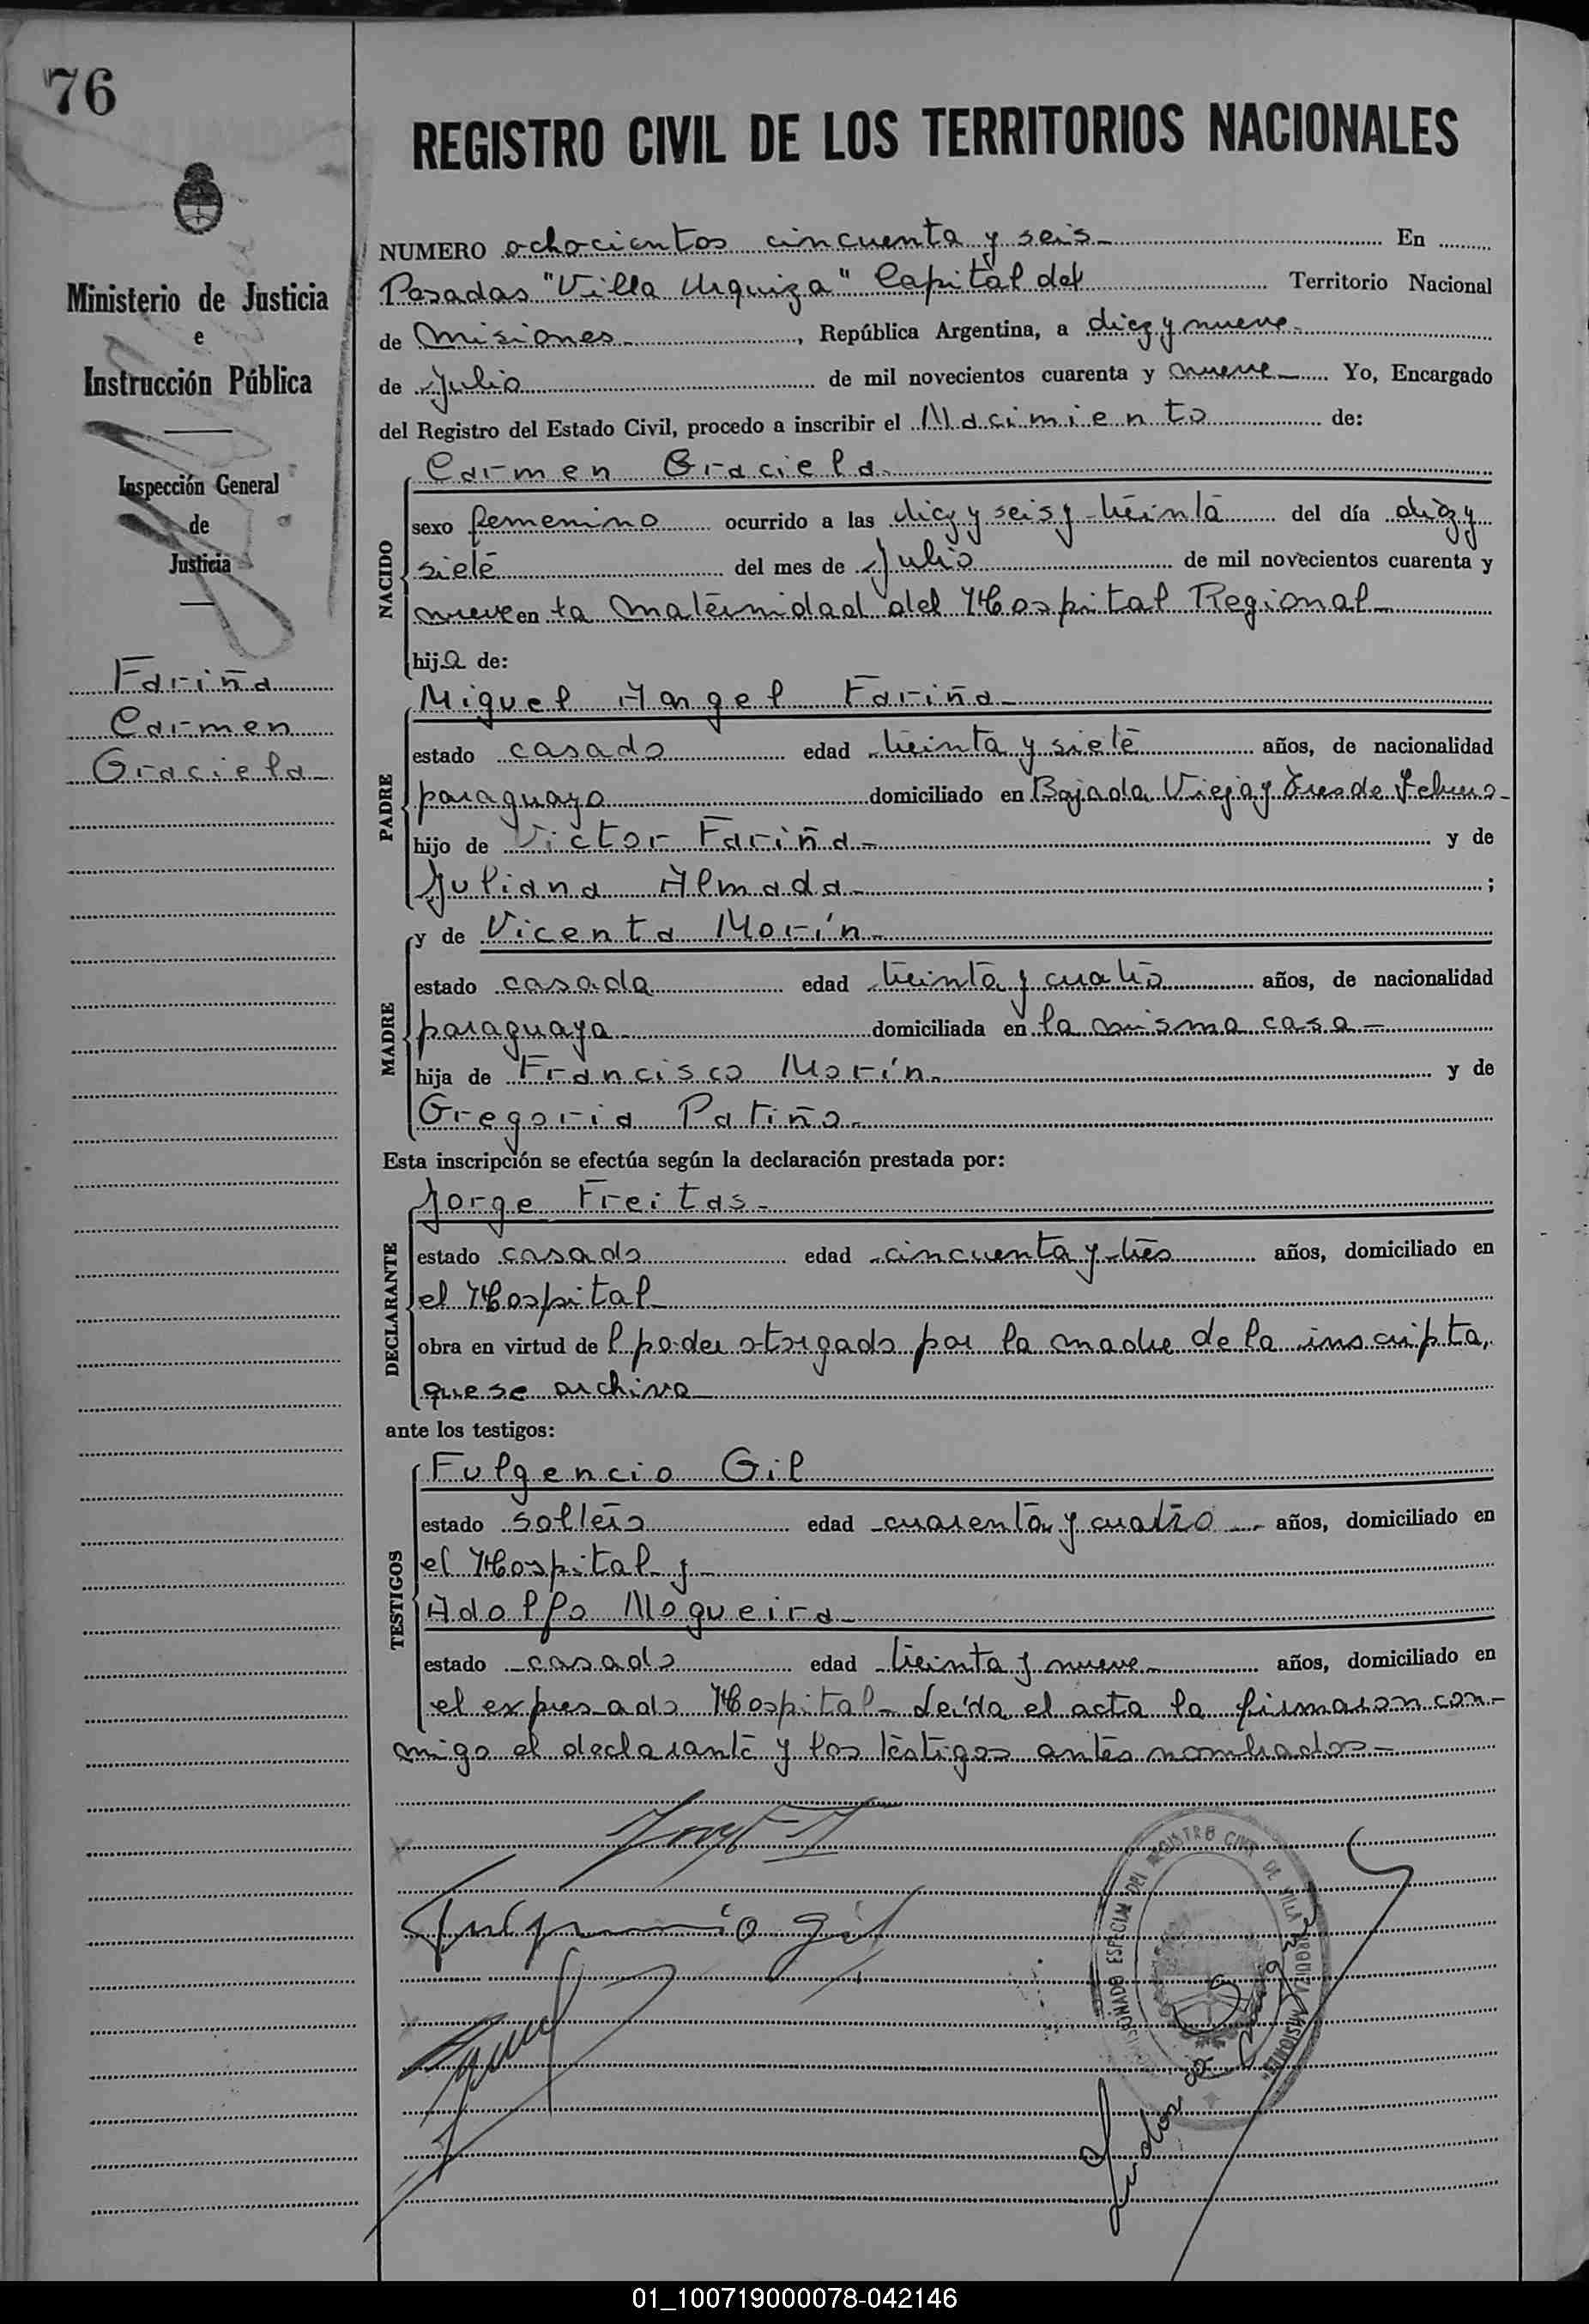 76
REGISTRO CIVIL DE LOS TERRITORIOS NACIONALES
Ministerio de Justicia
e
Instrucción Pública
Inspección General
de
Justicia
Fariña
Carmen
Graciela
NUMERO ochocientos cincuenta y seis En
Posadas "Villa Urquiza" Capital del Territorio Nacional
de Misiones , República Argentina, a diez y nueve
de Julio de mil novecientos cuarenta y nueve Yo, Encargado
del Registro del Estado Civil, procedo a inscribir el Nacimiento de:
NACIDO
Carmen Graciela
sexo femenino ocurrido a las diez y seis y treinta del día diez y
siete del mes de Julio de mil novecientos cuarenta y
nueve en la Maternidad del Hospital Regional
hija de:
PADRE
Miguel Angel Fariña
estado casado edad treinta y siete años, de nacionalidad
paraguayo domiciliado en Bajada Vieja y Tres de Febrero
hijo de Victor Fariña y de
Juliana Almada ;
MADRE
y de Vicenta Morín
estado casada edad treinta y cuatro años, de nacionalidad
paraguaya domiciliada en la misma casa
hija de Francisco Morín y de
Gregoria Patiño
Esta inscripción se efectúa según la declaración prestada por:
DECLARANTE
Jorge Freitas
estado casado edad cincuenta y tres años, domiciliado en
el Hospital
obra en virtud del poder otorgado por la madre de la inscripta,
que se archiva
ante los testigos:
TESTIGOS
Fulgencio Gil
estado soltero edad cuarenta y cuatro años, domiciliado en
el Hospital y
Adolfo Nogueira
estado casado edad treinta y nueve años, domiciliado en
el expresado Hospital - Leída el acta la firmaron con-
migo el declarante y los testigos antes nombrados
Fulgencio Gil
ESPECIAL DEL REGISTRO CIVIL DE VILLA URQUIZA MISIONES
01_100719000078-042146